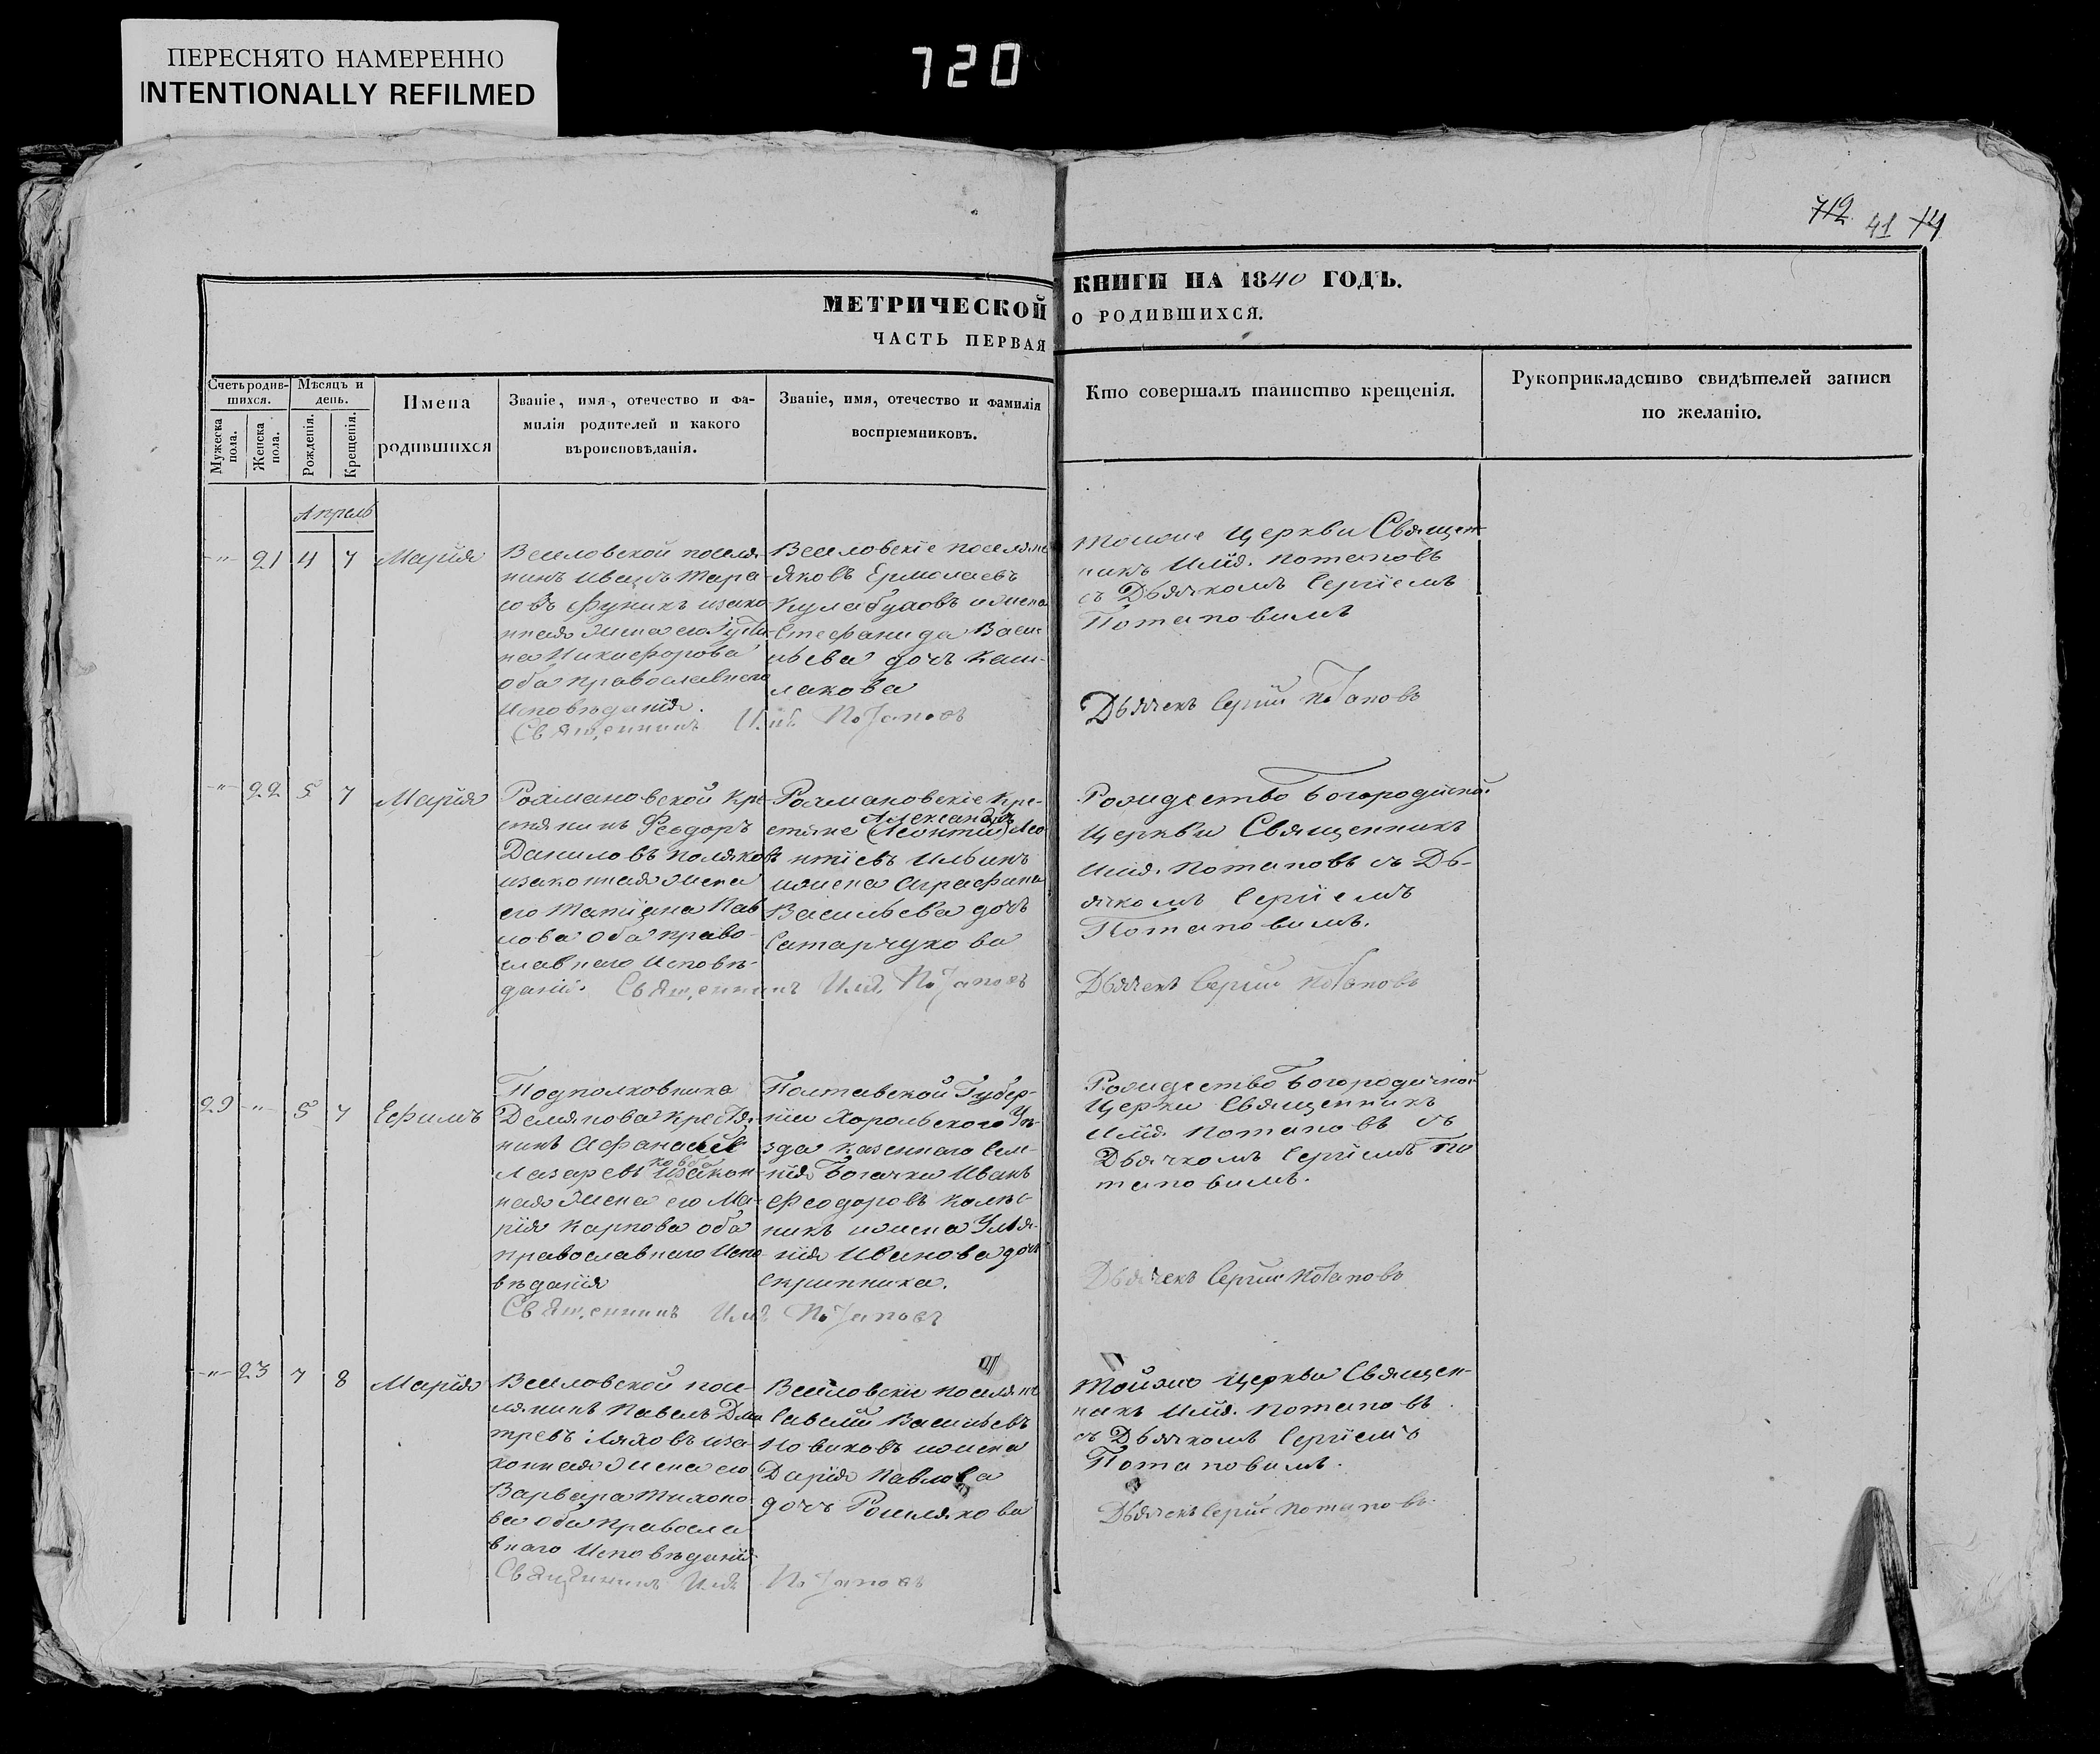 ПЕРЕСНЯТО НАМЕРЕННО
INTENTIONALLY REFILMED
720
712 41 74
МЕТРИЧЕСКОЙ
ЧАСТЬ ПЕРВАЯ
КНИГИ НА 1840 ГОДЪ.
О РОДИВШИХСЯ.
Счетъ родив-
шихся.
Мужеска
пола.
Женска
пола.
Мѣсяцъ и
день.
Рожденія.
Крещенія.
Имена
родившихся
Званіе, имя, отечество и фа-
милія родителей и какого
вѣроисповѣданія.
Званіе, имя, отечество и фамилія
воспріемниковъ.
Кто совершалъ таинство крещенія.
Рукоприкладство свидѣтелей записи
по желанію.
Апрель
-"- 21 4 7 Марія
Веселовской поселя-
нинъ Иванъ Тара
совъ Фуникъ изако
нная жена его
на Никифорова
оба православнаго
Исповѣданія.
Священникъ Илія Потаповъ
Веселовскіе поселяне
Яковъ Ермолаевъ
Кулабуховъ ижена
Стефанида Васи
льева дочь Каш-
лакова
Церкви Священ
никъ Илія Потаповъ
съ Дьячкомъ Сергіемъ
Потаповимъ
Дьячекъ Сергій Потаповъ
-"- 22 5 7 Марія
кре
стянинъ Феодоръ
Даниловъ Поляковъ
изаконная жена
его Татіяна Пав
лова оба право-
славнаго Исповѣ-
данія. Священникъ Илія Потаповъ
кре-
Александръ
стяне (Леонтій) Лео
нтіевъ Ильинъ
ижена Аграфина
Васильева дочь
Сатарчукова
Рождество Богородичной
Церкви Священникъ
Илія Потаповъ съ Дь-
ячкомъ Сергіемъ
Потаповимъ.
Дьячекъ Сергій Потаповъ
23 -"- 5 7 Ефимъ
Подполковника
Демянова крестя-
нинъ Афанасій
ковъ
Лазаревъ изакон
ная жена его Ма-
рія Карпова оба
православнаго Испо
вѣданія
Священникъ Илія Потаповъ
Полтавской Губер-
ніи Хорольского Уѣ-
зда казеннаго Селе-
нія Богачки Иванъ
Феодоровъ Колѣс-
никъ ижена Улія-
нія Иванова дочь
Скрипника.
Рождество Богородичной
Церкви Священникъ
Илія Потаповъ съ
Дьячкомъ Сергіемъ По
таповимъ.
Дьячекъ Сергій Потаповъ
-"- 23 7 8 Марія
Веселовской посе-
лянинъ Павелъ Дми
тревъ Ляховъ иза-
конная жена его
Варвара Тихоно
ва оба православ
внаго Исповѣданія
Священникъ Илія Потаповъ
Веселовскіе поселяне
Савелій Васильевъ
Новиковъ ижена
Дарія Павлова
дочь Рошлякова
Тойже Церкви Священ-
никъ Илія Потаповъ
съ Дьячкомъ Сергіемъ
Потаповимъ.
Дьячекъ Сергій Потаповъ.